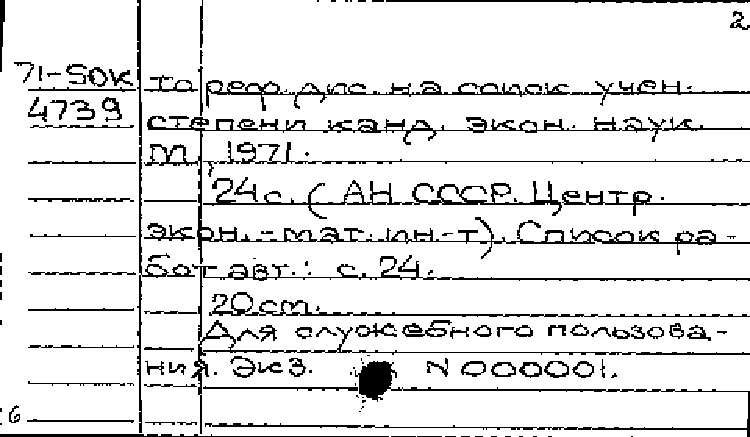 2
71-50к то реф. дис. на соиск. учен.
4739 степени канд. экон. наук.
М., 1971.
24с. (АН СССР. Центр.
экон.-мат. ин-т). Список ра-
бот авт.: с. 24.
20см.
Для служебного пользова-
ния. Экз. N 000001.
6